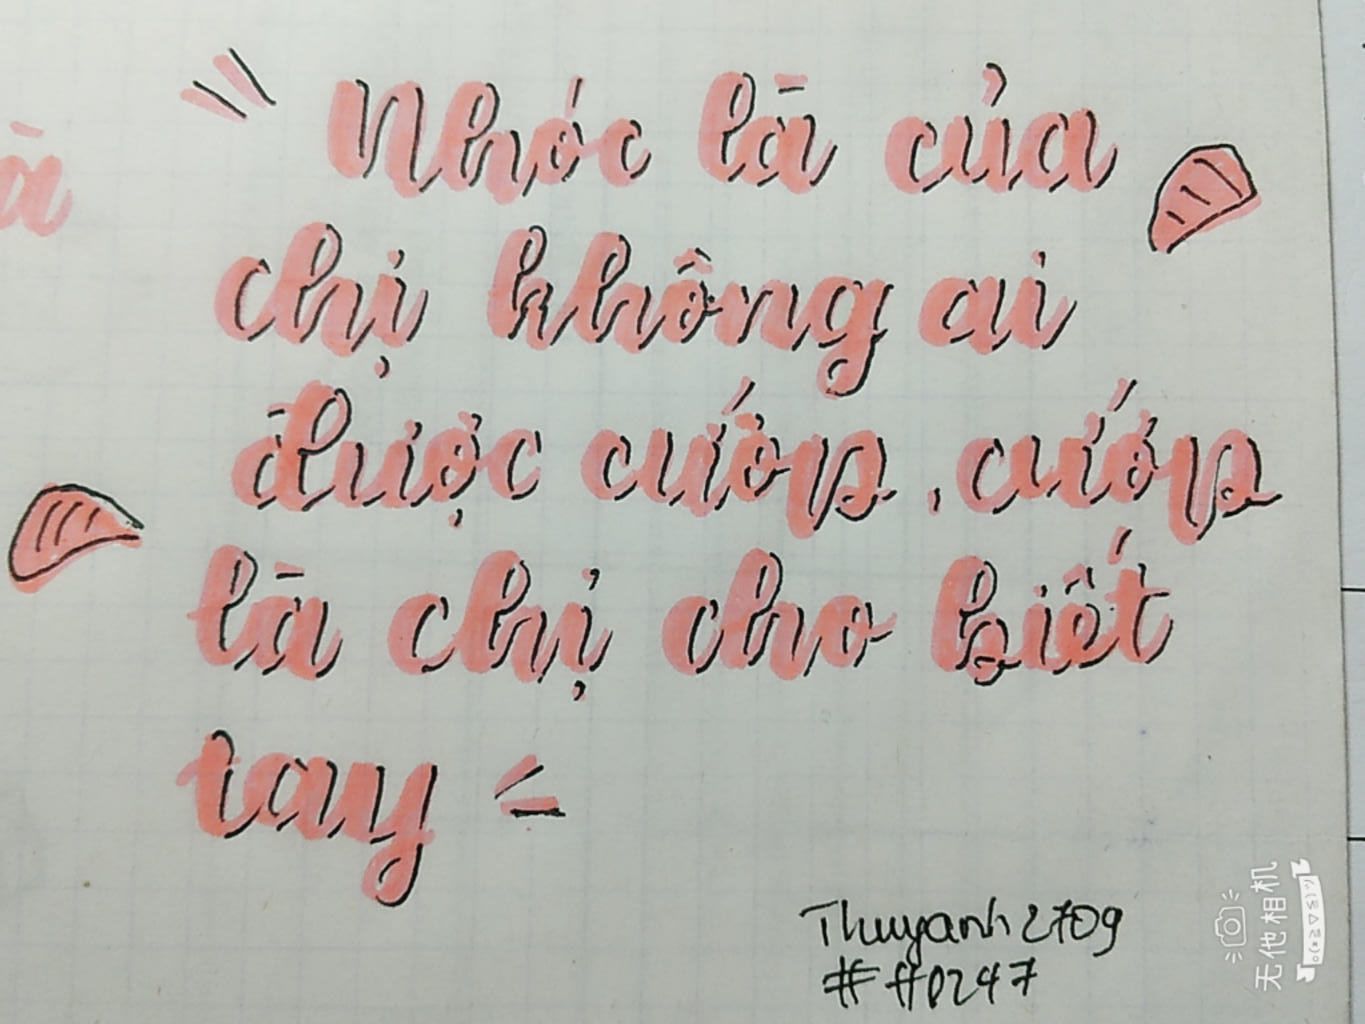 Nhóc là của
chị không ai
được cướp, cướp
là chị cho biết
tay
Thuyanh2709
#ffp247
无他相机